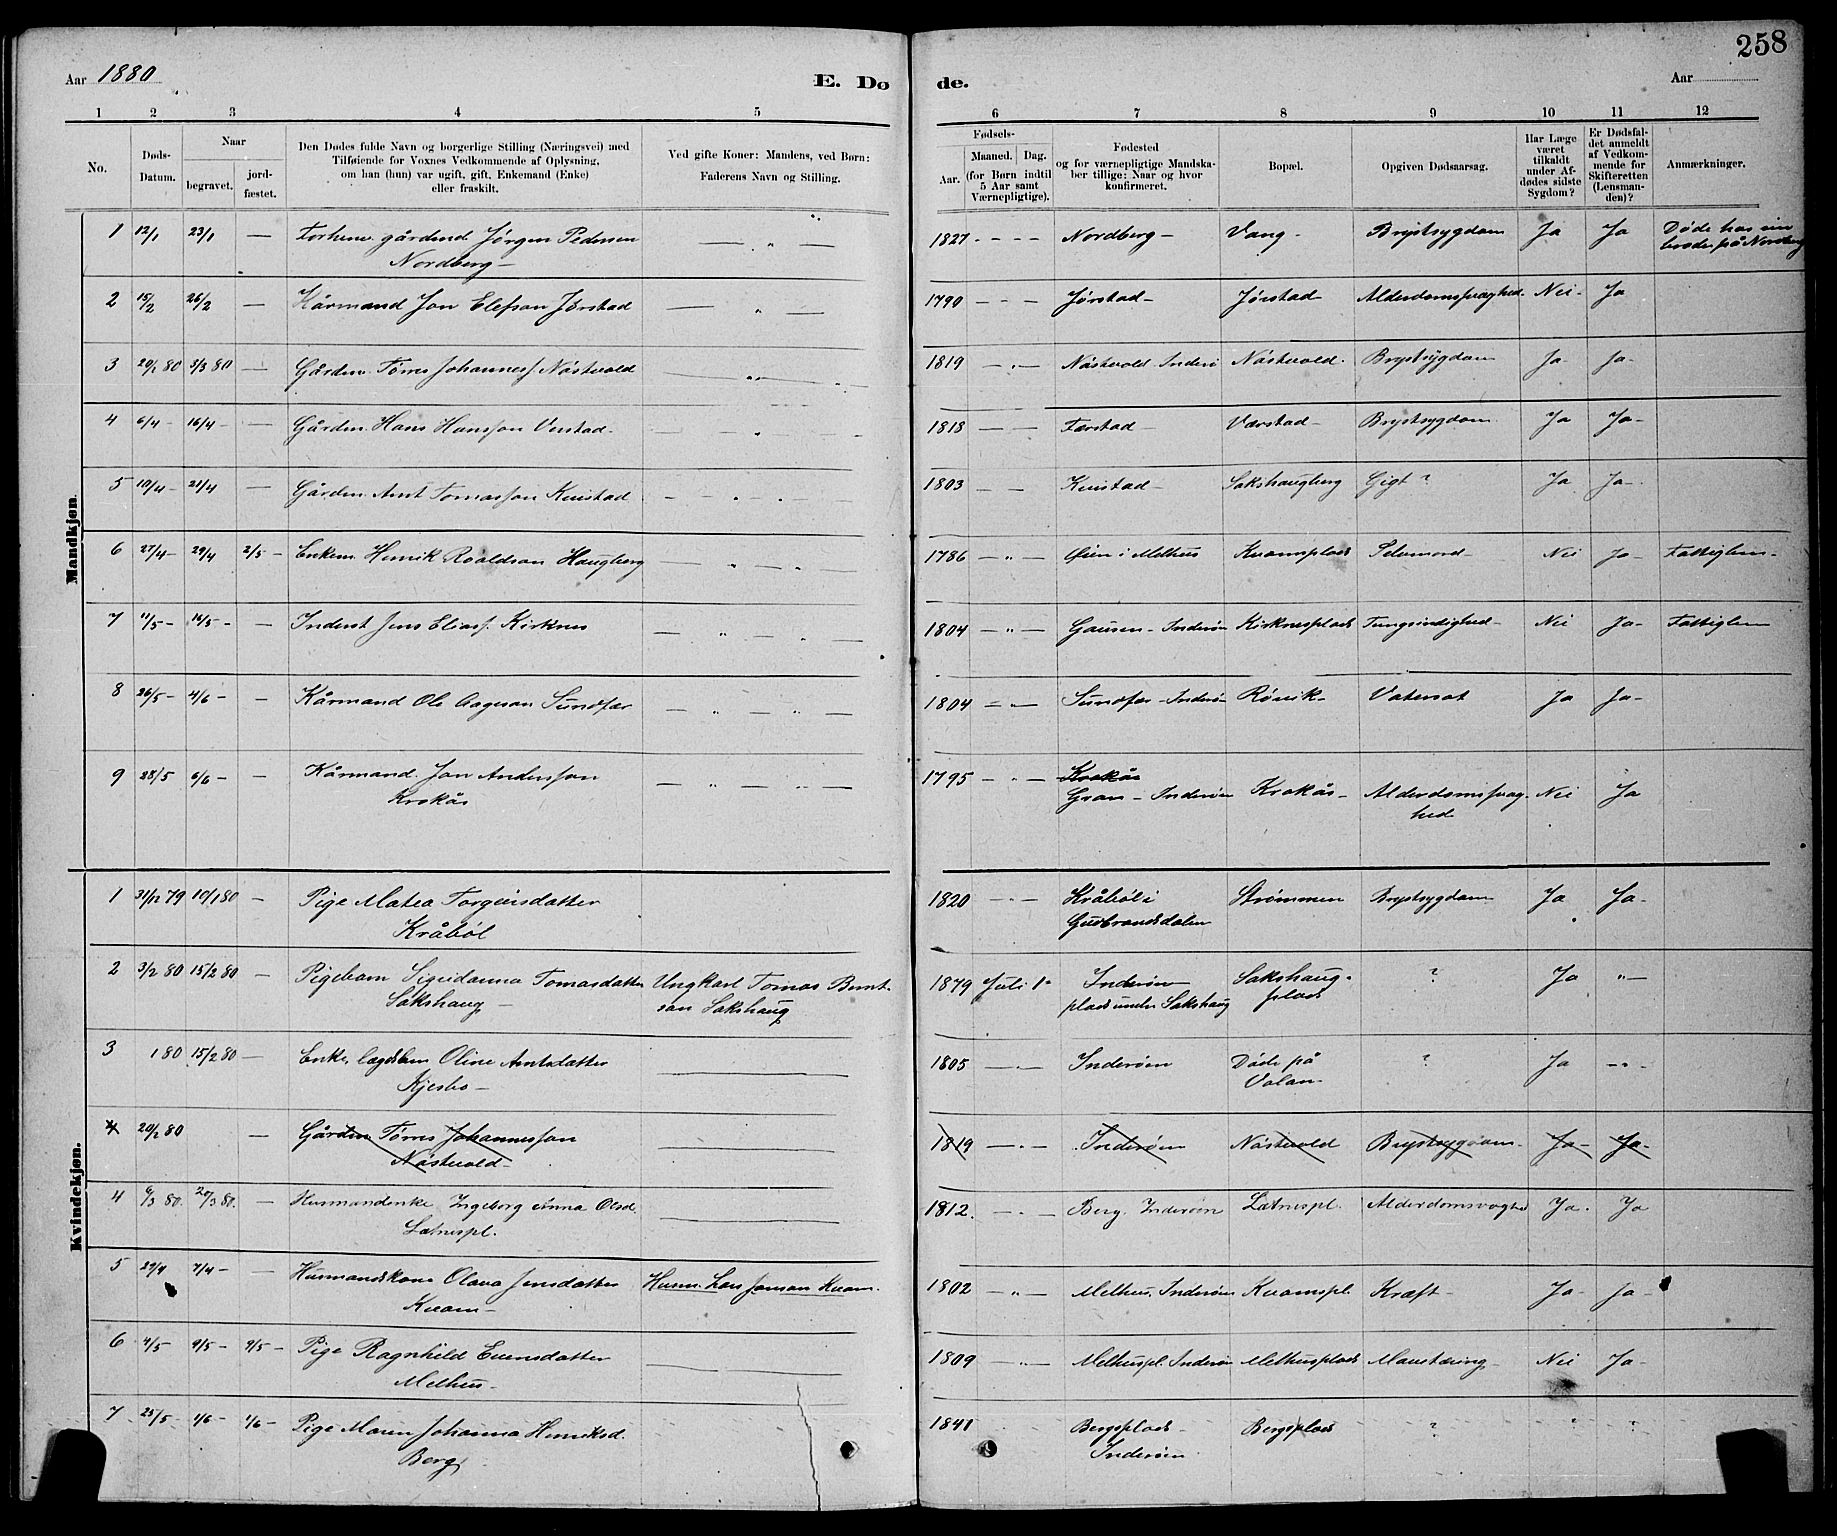 258
Aar 1880 E. Døde. Aar
1 2 3 4 5 6 7 8 9 10 11 12
No.
Døds-Datum.
Naar
begravet.
jord-fæstet.
Den Dødes fulde Navn og borgerlige Stilling (Næringsvei) med
Tilføiende for Voxnes Vedkommende af Oplysning,
om han (hun) var ugift, gift, Enkemand (Enke)
eller fraskilt.
Ved gifte Koner: Mandens, ved Børn:
Faderens Navn og Stilling.
Fødsels-
Aar.
Maaned. Dag.
(for Børn indtil
5 Aar samt
Værnepligtige).
Fødested
og for værnepligtige Mandska-
ber tillige: Naar og hvor
konfirmeret.
Bopæl.
Opgiven Dødsaarsag.
Har Læge
været
tilkaldt
under Af-
dødes sidste
Sygdom?
Er Dødsfal-
det anmeldt
af Vedkom-
mende for
Skifteretten
(Lensman-
den)?
Anmærkninger.
Mandkjøn.
1 12/1 23/1 — Forhenv. gårdmd Jørgen Pedersen 1827 - - - Nordberg - Vang - Brystsygdom Ja Ja Døde hos sin
Nordberg - broder på Nordberg
2 15/2 26/2 — Kårmand Jon Elefson Jørstad — " — 1790 - - - Jørstad - Jørstad Alderdomssvaghed. Nei - Ja
3 20/2 80 3/3 80 — Gården. Tørres Johanness. Nøstvold 1819 - " - Nøstvold Inderø Nøstvold. Brystsygdom Ja - Ja -
4 6/4 - 16/4 - — Gården. Hans Hansson Verstad - 1818 — — Færstad - Værstad - Brystsygdom. Ja Ja -
5 10/4 - 21/4 — Gården Arnt Tomasson Kvistad 1803 — — Kvistad - Sakshaugberg Gigt ? Ja Ja -
6 27/4 - 29/4 2/5 - Enkem. Henrik Roaldson Haugberg 1786 - " Øien i Melhus Kvamsplads Selvmord - Nei Ja - Fattiglem -
7 11/5 - 16/5 - — Inderst Jens Eliass. Kirknes 1804 - " - - Inderøn Kirknesplads Tungsindighed - Nei Ja - Fattiglem
8 26/5 - 4/6 - - Kårmand Ole Aageson Sundfær 1804 - " - Sundfær - Inderøn Røvik - Vatersot Ja Ja -
9 28/5 6/6 - - Kårmand. Jon Andersson 1795 - " - Krokås
Krokås Gran - Inderøn Krokås - Alderdomssvag- Nei Ja
hed
Kvindekjøn.
1 31/12 79 10/1 80 - Pige Matea Torgeirsdatter 1820 - " - Kråbøl i Strømmen Brystsygdom Ja Ja -
Kråbøl Gudbrandsdalen
2 3/2 80 15/2 80 - Pigebarn Sigridanna Tomasdatter Ungkarl Tomas Bernt- 1879 Juli 1 Inderøn Sakshaug- ? Ja " -
Sakshaug - son Sakshaug plads under Sakshaug plads
3 1 80 15/2 80 - Enke, lægdslem Oline Arntsdatter 1805 - " - Inderøn Døde på ? Ja - " -
Kjesbo - Valan -
4 20/2 80 - Gården Tørres Johannesson 1819 - " - Inderøn Nøstvold Brystsygdom - Ja - Ja -
Nøstvold -
4 6/3 80. 20/3 80. - Husmandenke Ingeborg Anna Olsd. 1812. - " - Berg. Inderøn Letnespl. Alderdomsvaghed Ja - Ja
Letnespl.
5 29/4 7/4 - - Husmandskone Olava Jensdatter Husm. Lars Jonson Kvam. 1802 - " - Melhus, Inderøn Kvamspl. Kræft - Ja - Ja -
Kvam -
6 4/5 9/5 - 9/5 - Pige Ragnhild Evensdatter 1809 - " - Melhuspl. Inderøn Melhusplads Mavetæring - Nei Ja -
Melhus -
7 25/5 - 1/6 - 1/6 - Pige Maren Johanna Henriksd. 1841 Bergsplads - Bergsplads ? " ?
Berg Inderøen